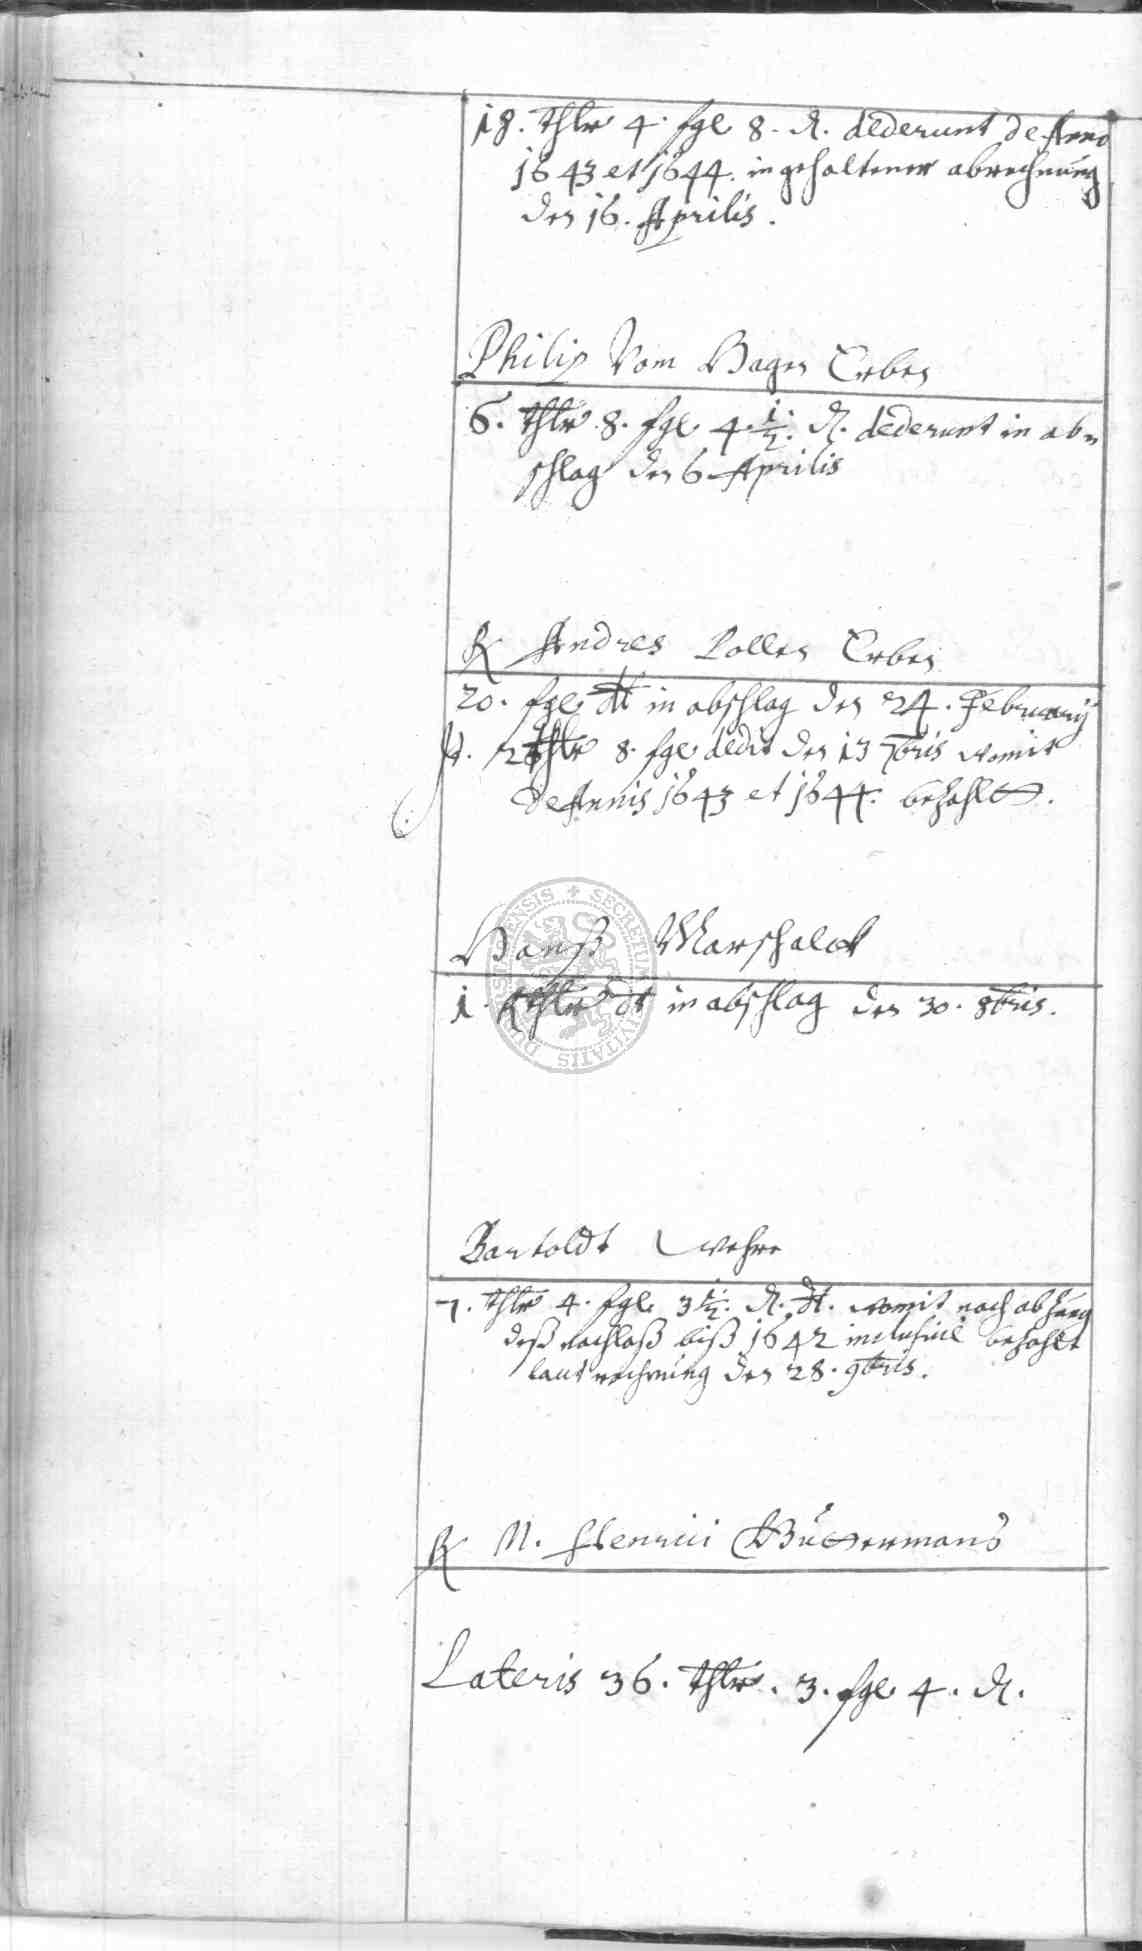 18. thlr 4. sgl 8. d. dederunt de Anno
1643 et 1644. in gehaltener abrechnung
den 16. Aprilis.
Philip Vom Hagen Erben
6. thlr 8. sgl. 4. 1/2. d. dederunt in ab=
schlag den 6 Aprilis
Andres Pollen Erben
20. sgl dt in abschlag den 24. February
It. 2 thlr 8. sgl dedit den 13 7bris womit
de Annis 1643 et 1644. bezahlt.
Hanß Marschalck
1. Rthlr dt in abschlag den 30. 8bris.
Bartoldt Wehre
7. thlr 4. sgl. 3 1/2. d. dt. womit nach abzug
deß nachlaß biß 1642 inclusive bezahlt
laut rechnung den 28. 9bris.
M. Henrici Büttermans
Lateris 36. thlr. 3. sgl 4. d.
SECRETUM CIVITATIS